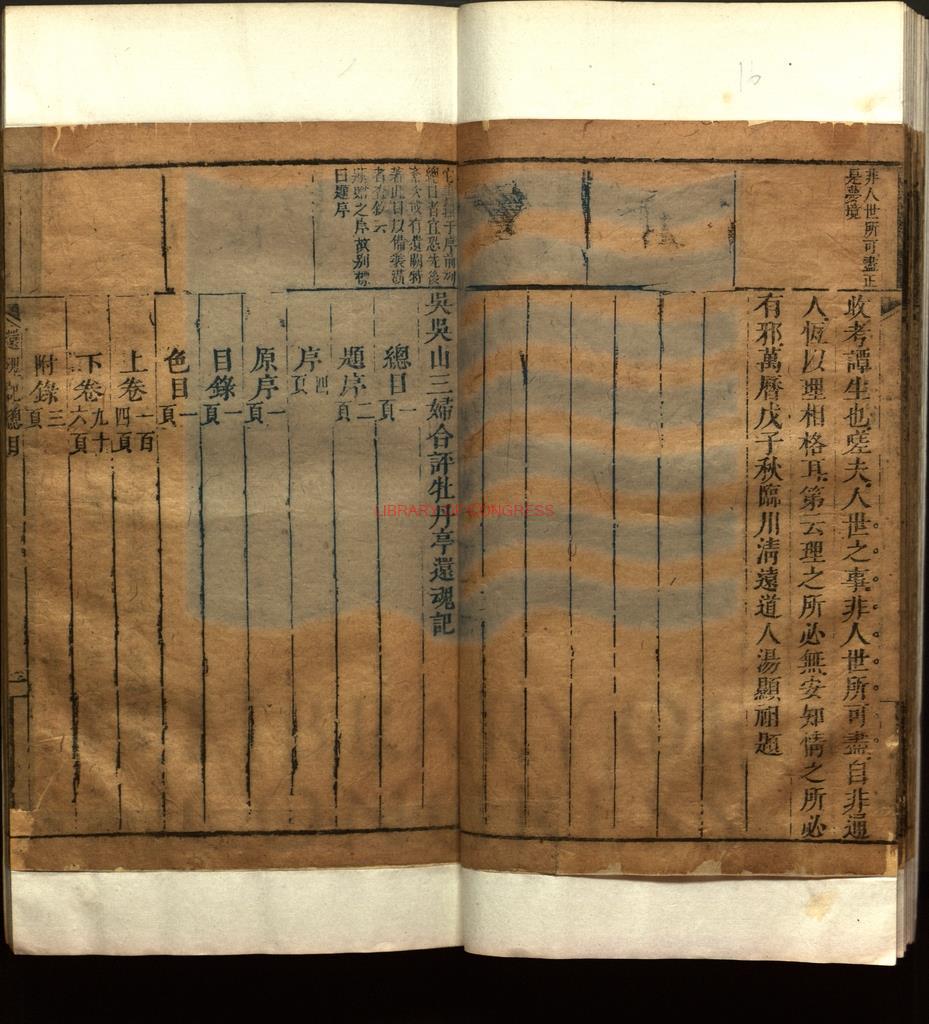 非人世所可盡正
是夢境
收考譚生也嗟夫人世之事非人世所可盡自非通
人恆以理相格耳第云理之所必無安知情之所必
有邪萬曆戊子秋臨川清遠道人湯顯祖題
序前列
總目者宜恐先後
或有遺闕特
著此目以備裝潢
者查敘云
之序故別標
曰題序
吳吳山三婦合評牡丹亭還魂記
總目一頁
題序二頁
序四頁
原序一頁
目錄一頁
色目一頁
上卷一百四頁
下卷九十六頁
附錄三頁
還魂記總目
LIBRARY OF CONGRESS